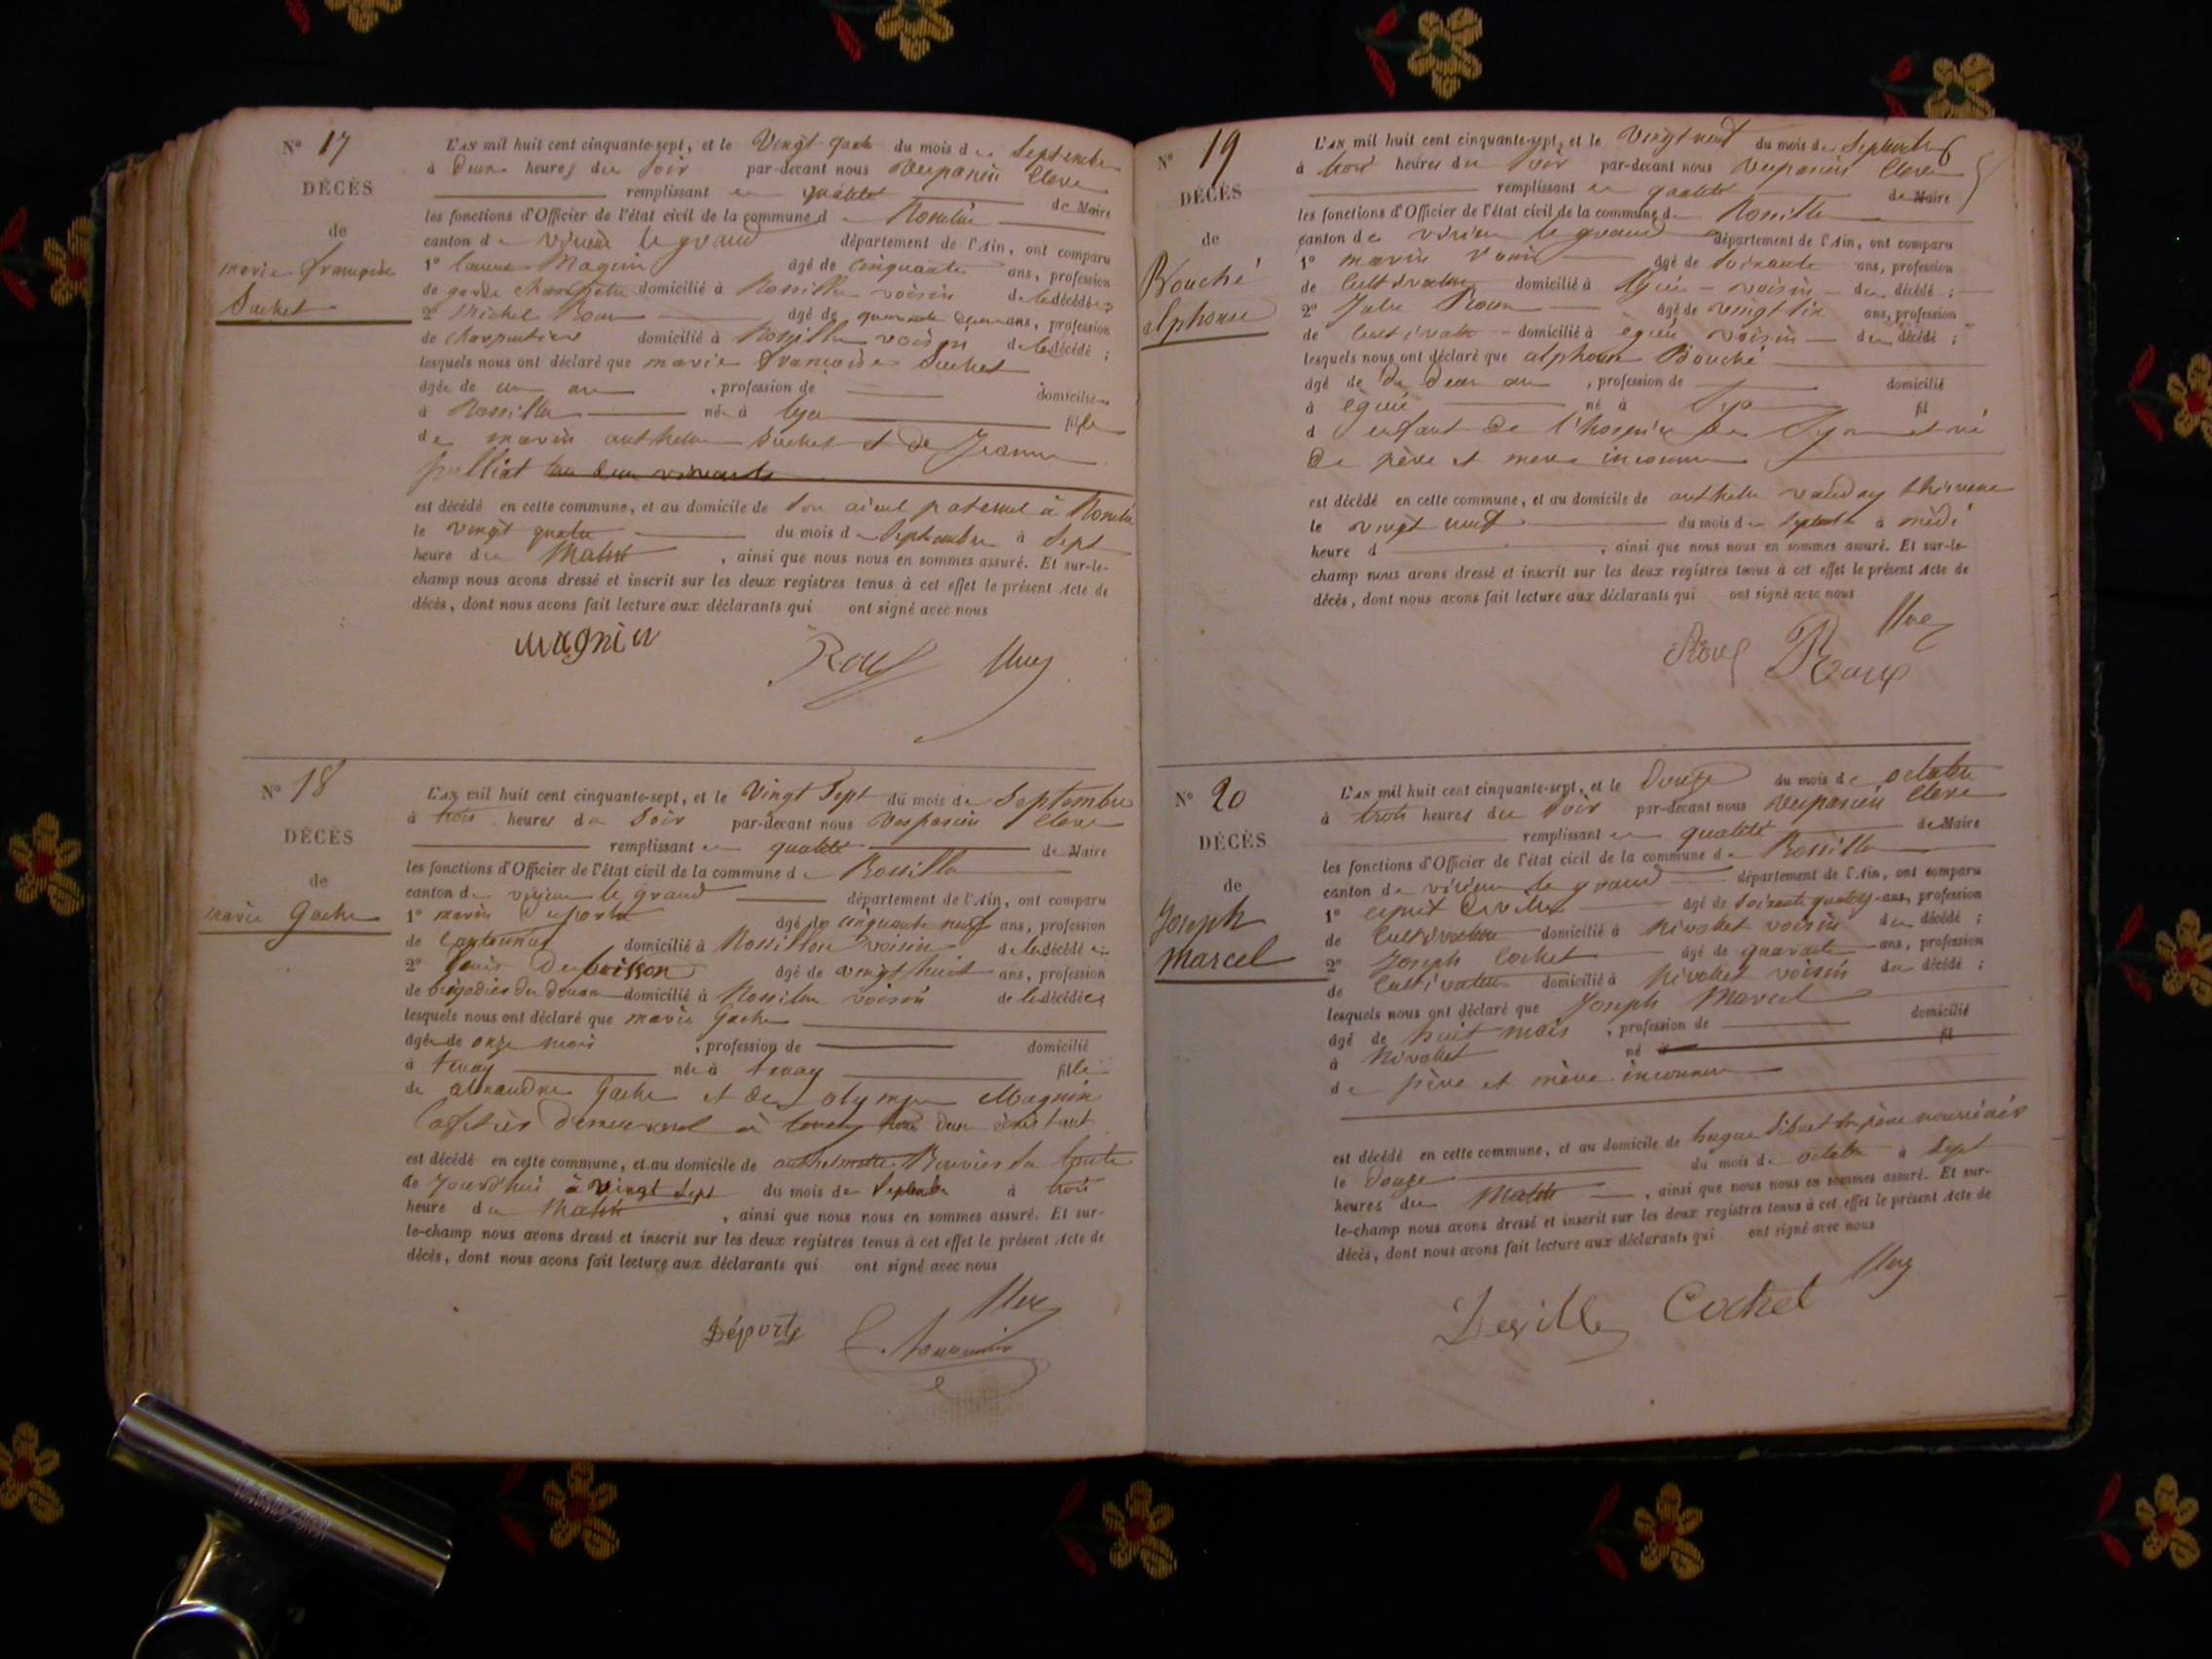 N° 17
DÉCÈS
de
marie françoise
Suchet
L'AN mil huit cent cinquante-sept, et le Vingt quatre du mois de Septembre
à deux heures du Soir par-devant nous Vespasien Clerc
remplissant en qualité de Maire
les fonctions d'Officier de l'état civil de la commune de Rossillon
canton de virieu le grand département de l'Ain, ont comparu
1° Magnin âgé de cinquante ans, profession
de garde champêtre domicilié à Rossillon voisin de la décédée
2° Michel Roux âgé de quarante deux ans, profession
de charpentier domicilié à Rossillon voisin de la décédé ;
lesquels nous ont déclaré que marie françoise Suchet
âgée de un an , profession de domiciliée
à Rossillon née à Lyon fille
de marin anthelme Suchet et de Jeanne
est décédé en cette commune, et au domicile de son aïeul paternel à Rossillon
le vingt quatre du mois de Septembre à Sept
heure du Matin , ainsi que nous nous en sommes assuré. Et sur-le-
champ nous avons dressé et inscrit sur les deux registres tenus à cet effet le présent Acte de
décès, dont nous avons fait lecture aux déclarants qui ont signé avec nous
magnin Roux
N° 18
DÉCÈS
de
marie Gache
L'AN mil huit cent cinquante-sept, et le Vingt Sept du mois de Septembre
à trois heures du Soir par-devant nous Vespasien Clerc
remplissant en qualité de Maire
les fonctions d'Officier de l'état civil de la commune de Rossillon
canton de virieu le grand département de l'Ain, ont comparu
1° marin Deporte âgé de cinquante neuf ans, profession
de cantonnier domicilié à Rossillon voisin de la décédé
2° Louis âgé de vingt huit ans, profession
de brigadier domicilié à Rossillon voisin de la décédée
lesquels nous ont déclaré que marie Gache
âgée de onze mois , profession de domicilié
à tenay née à tenay fille
de alexandre Gache et de olympe Magnin
est décédé en cette commune, et au domicile de
de jourd'hui à Vingt Sept du mois de Septembre à trois
heure du Matin , ainsi que nous nous en sommes assuré. Et sur-
le-champ nous avons dressé et inscrit sur les deux registres tenus à cet effet le présent Acte de
décès, dont nous avons fait lecture aux déclarants qui ont signé avec nous
Déporte
N° 19
DÉCÈS
de
Bouché
alphonse
L'AN mil huit cent cinquante-sept, et le Vingt neuf du mois de Septembre
à trois heures du Soir par-devant nous Vespasien Clerc
remplissant en qualité de Maire
les fonctions d'Officier de l'état civil de la commune de Rossillon
canton de virieu le grand département de l'Ain, ont comparu
1° marin âgé de Soixante ans, profession
de Cultivateur domicilié à voisin du décédé ;
2° Roux âgé de vingt six ans, profession
de Cultivateur domicilié à égieu voisin du décédé ;
lesquels nous ont déclaré que alphonse Bouché
âgé de deux ans , profession de domicilié
à égieu né à Lyon fil
d enfant de l'hospice de Lyon et né
de père et mère inconnu
est décédé en cette commune, et au domicile de anthelme
le vingt neuf du mois de Septembre à midi
heure d , ainsi que nous nous en sommes assuré. Et sur-le-
champ nous avons dressé et inscrit sur les deux registres tenus à cet effet le présent Acte de
décès, dont nous avons fait lecture aux déclarants qui ont signé avec nous
Roux Roux
N° 20
DÉCÈS
de
Joseph
Marcel
L'AN mil huit cent cinquante-sept, et le Douze du mois de octobre
à trois heures du Soir par-devant nous Vespasien Clerc
remplissant en qualité de Maire
les fonctions d'Officier de l'état civil de la commune de Rossillon
canton de virieu le grand département de l'Ain, ont comparu
1° esprit âgé de soixante quatorze ans, profession
de Cultivateur domicilié à Nivollet voisin du décédé ;
2° Joseph Cochet âgé de quarante ans, profession
de Cultivateur domicilié à Nivollet voisin du décédé ;
lesquels nous ont déclaré que Joseph Marcel
âgé de huit mois , profession de domicilié
à Nivollet né à fil
de père et mère inconnu
est décédé en cette commune, et au domicile de hugue Sibuet son père nourricier
le Douze du mois de octobre à Sept
heures du Matin , ainsi que nous nous en sommes assuré. Et sur-
le-champ nous avons dressé et inscrit sur les deux registres tenus à cet effet le présent Acte de
décès, dont nous avons fait lecture aux déclarants qui ont signé avec nous
Cochet